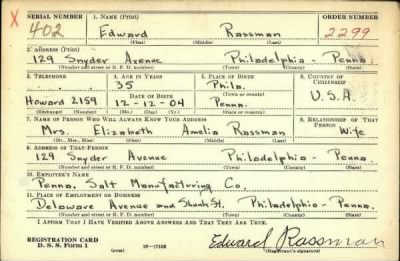 X
SERIAL NUMBER 1. NAME (Print) ORDER NUMBER
402 Edward Rassman 2299
(First) (Middle) (Last)
2. ADDRESS (Print)
129 Snyder Avenue Philadelphia - Penna.
(Number and street or R. F. D. number) (Town) (County) (State)
3. TELEPHONE 4. AGE IN YEARS 5. PLACE OF BIRTH 6. COUNTRY OF CITIZENSHIP
35 Phila.
DATE OF BIRTH (Town or county)
Howard 2159 12-12-04 Penna. U.S.A.
(Exchange) (Number) (Mo.) (Day) (Yr.) (State or country)
7. NAME OF PERSON WHO WILL ALWAYS KNOW YOUR ADDRESS 8. RELATIONSHIP OF THAT PERSON
Mrs. Elizabeth Amelia Rassman Wife
(Mr., Mrs., Miss) (First) (Middle) (Last)
9. ADDRESS OF THAT PERSON
129 Snyder Avenue Philadelphia - Penna.
(Number and street or R. F. D. number) (Town) (County) (State)
10. EMPLOYER'S NAME
Penna. Salt Manufacturing Co.
11. PLACE OF EMPLOYMENT OR BUSINESS
Delaware Avenue and St. Philadelphia - Penna.
(Number and street or R. F. D. number) (Town) (County) (State)
I AFFIRM THAT I HAVE VERIFIED ABOVE ANSWERS AND THAT THEY ARE TRUE.
REGISTRATION CARD Edward Rassman
D. S. S. Form 1 (over) (Registrant's signature)